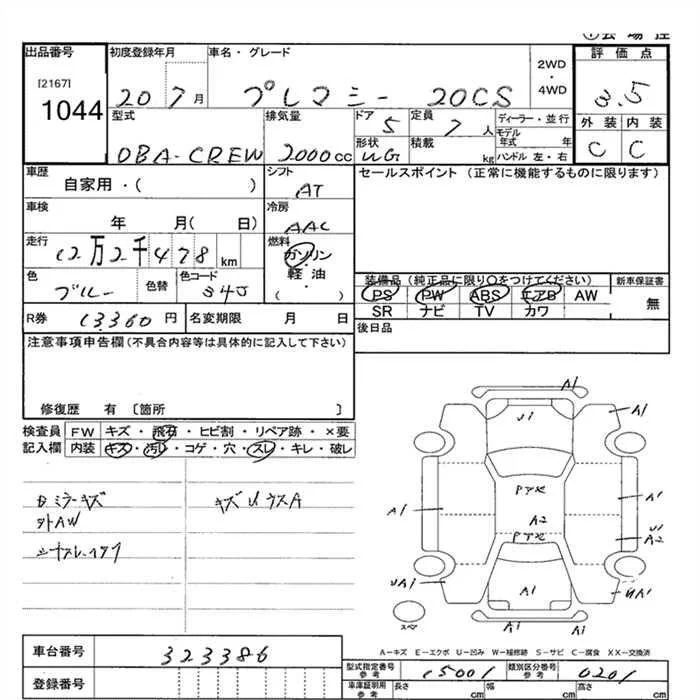 出品番号 初度登録年月 車名・グレード 2WD・4WD 評価点
[2167]
1044
20 7月 プレマシー 20CS 3.5
型式 排気量 ドア 定員 ディーラー・並行 外装 内装
DBA-CREW 2000cc 5 7人 モデル年式 年 C C
形状 積載 kg ハンドル 左・右
WG
車歴 シフト セールスポイント (正常に機能するものに限ります)
自家用・( ) AT
車検 冷房
年 月( 日) AAC
走行 燃料
12万2千478km ガソリン・軽油
色 色替 色コード ( )
ブルー 34J
装備品 (純正品に限り○をつけてください) 新車保証書
PS PW ABS エアB AW 無
SR ナビ TV カワ
R券 13,360円 名変期限 月 日 後日品
注意事項申告欄(不具合内容等は具体的に記入して下さい)
修復歴 有 〔箇所 〕
検査員 FW キズ・飛石・ヒビ割・リペア跡・×要
記入欄 内装 キズ・汚レ・コゲ・穴・スレ・キレ・破レ
ミラーキズ
外AW
A1
A1
A1
A1
A2
A2
A1
A1
A1
A1
スペア
A-キズ E-エクボ U-凹み W-補修跡 S-サビ C-腐食 XX-交換済
車台番号 323386
登録番号
型式指定番号 参考 15001 類別区分番号 参考 0201
車庫証明用 参考 長さ 幅 高さ